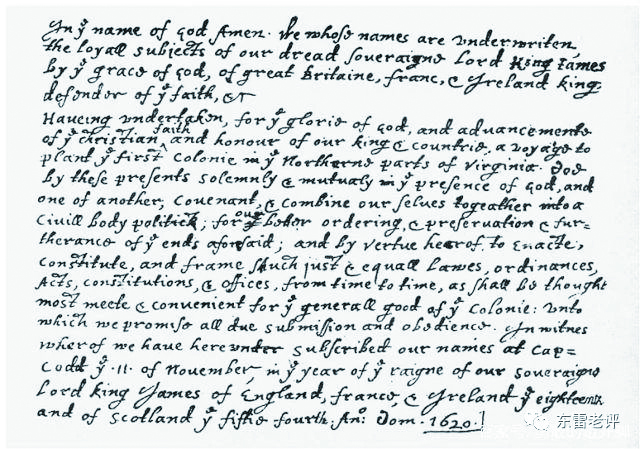 In yᵉ name of god Amen. We whose names are vnderwriten,
the loyall subjects of our dread soveraigne Lord King James
by yᵉ grace of god, of great Britaine, franc, & Ireland king,
defender of yᵉ faith, &c
Haveing vndertaken, for yᵉ glorie of god, and advancemente
of yᵉ christian faith and honour of our king & countrie, a voyage to
plant yᵉ first colonie in yᵉ Northerne parts of Virginia. doe
by these presents solemnly & mutualy in yᵉ presence of god, and
one of another, covenant, & combine our selves togeather into a
Civill body politick; for our better ordering, & preservation & fur=
therance of yᵉ ends aforesaid; and by vertue hearof, to enacte,
constitute, and frame shuch just & equall lawes, ordinances,
Acts, constitutions, & offices, from time to time, as shall be thought
most meete & convenient for yᵉ generall good of yᵉ Colonie: vnto
which we promise all due submission and obedience. In witnes
wherof we have here vnder subscribed our names at Cap=
Codd yᵉ ·11· of November, in yᵉ year of yᵉ raigne of our soveraigne
Lord king James of England, france, & Ireland yᵉ eighteenth
and of scotland yᵉ fiftie fourth. Anᵒ: Dom. 1620.
东雷老评